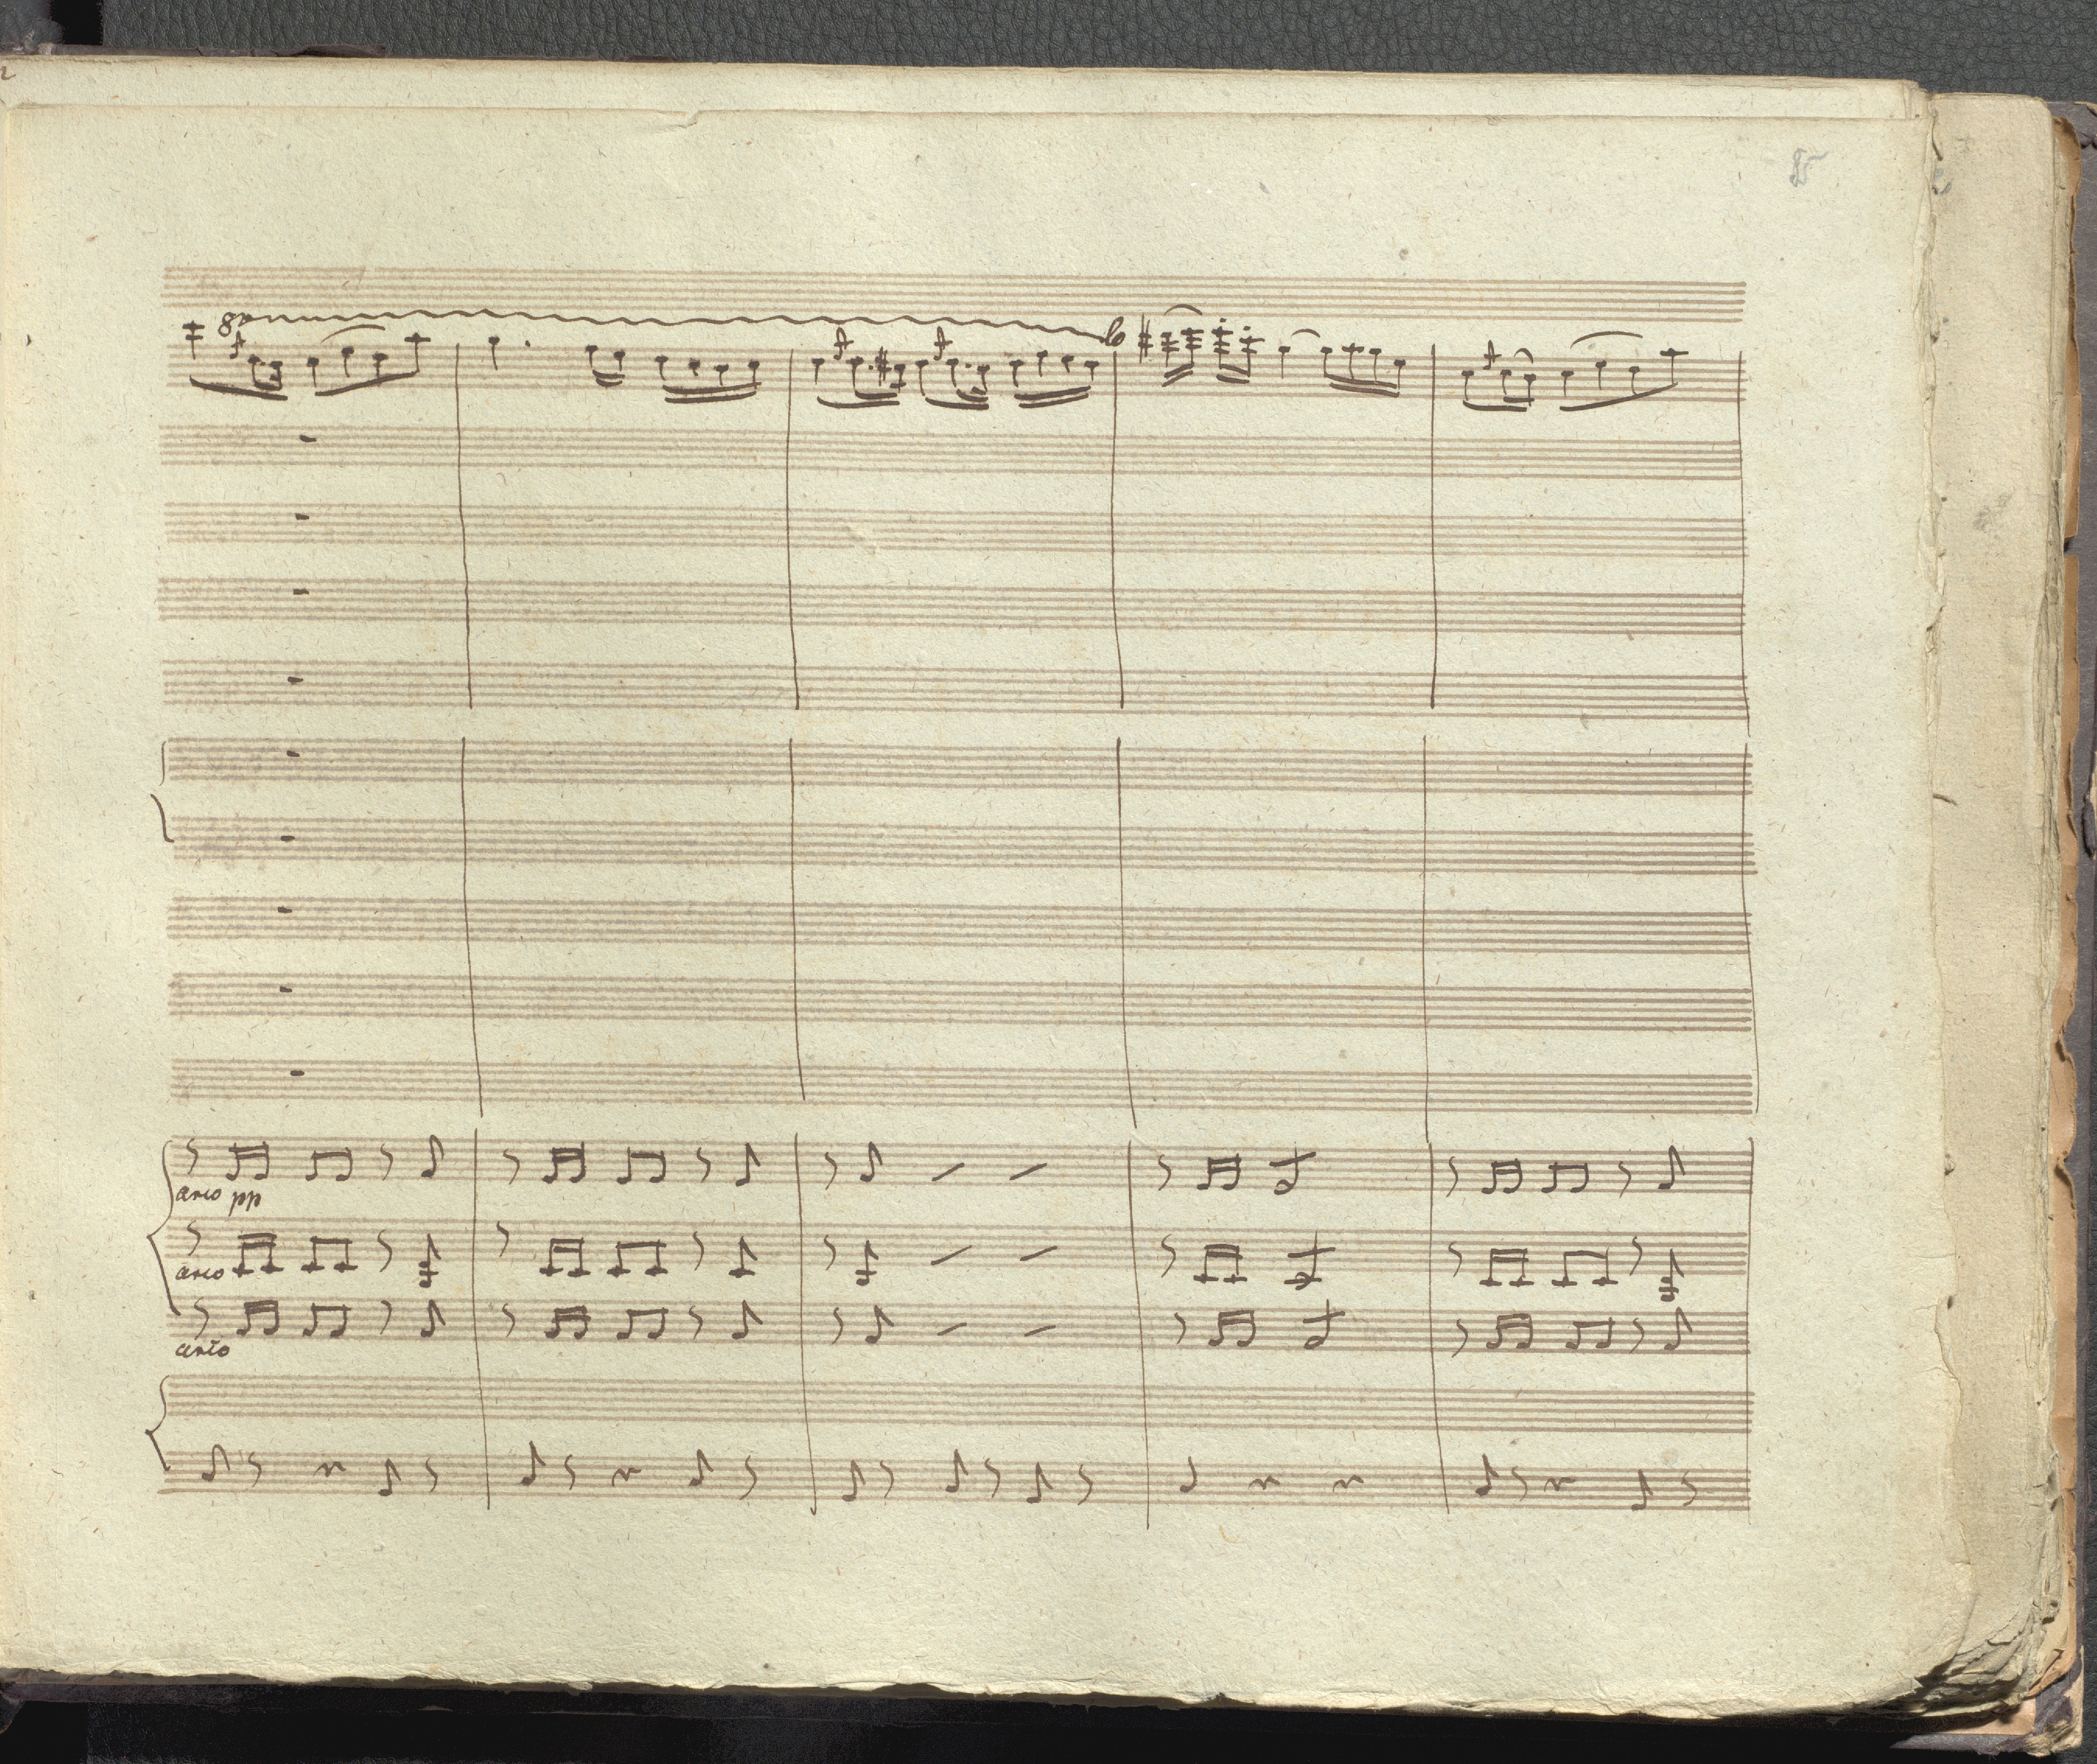 85
8a
lo
arco pp
arco
arco